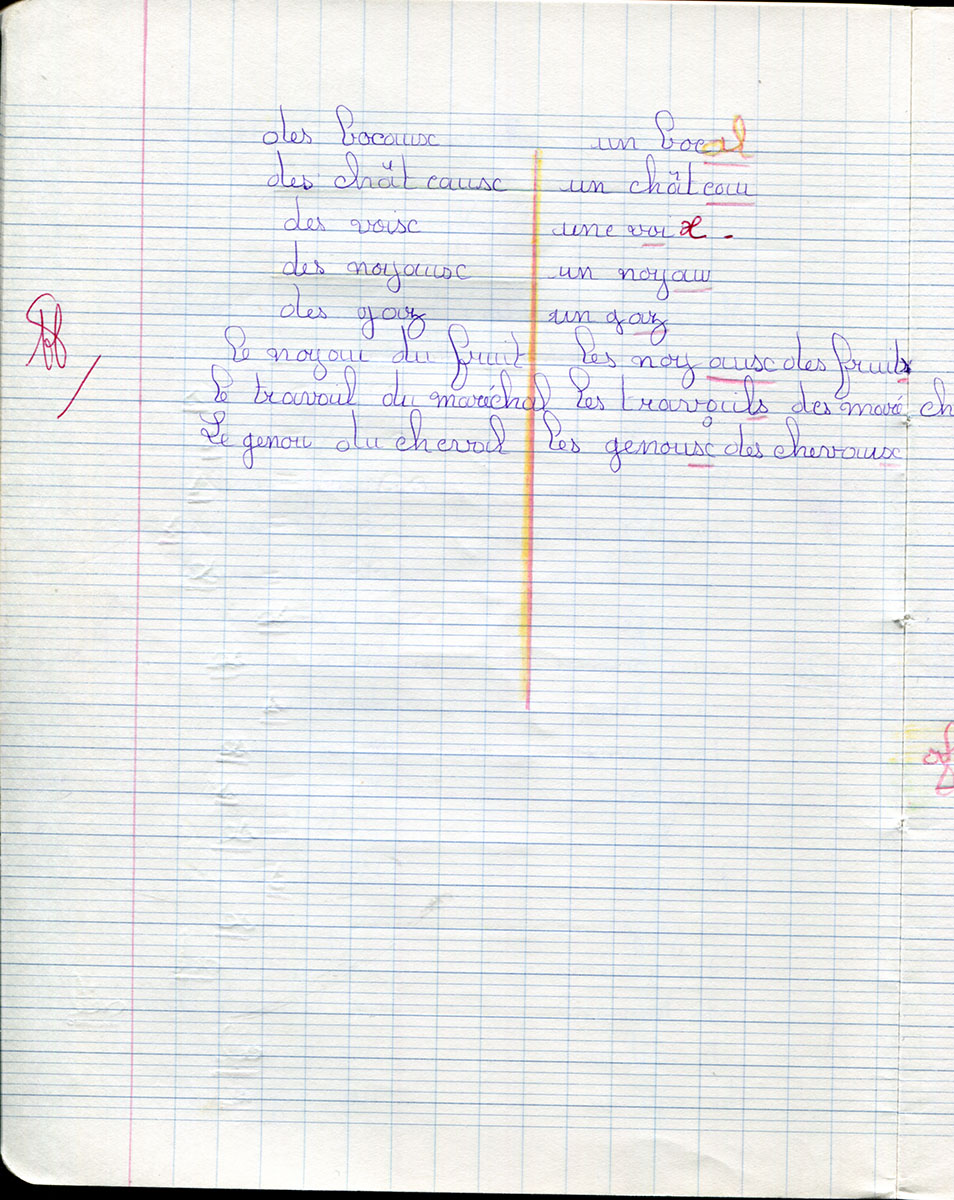 des bocaux un bocal
des châteaux un château
des voix une voix.
des noyaux un noyau
des gaz un gaz
le noyau du fruit les noyaux des fruits
le travail du maréchal les travails des maréch
Le genou du cheval les genoux des chevaux